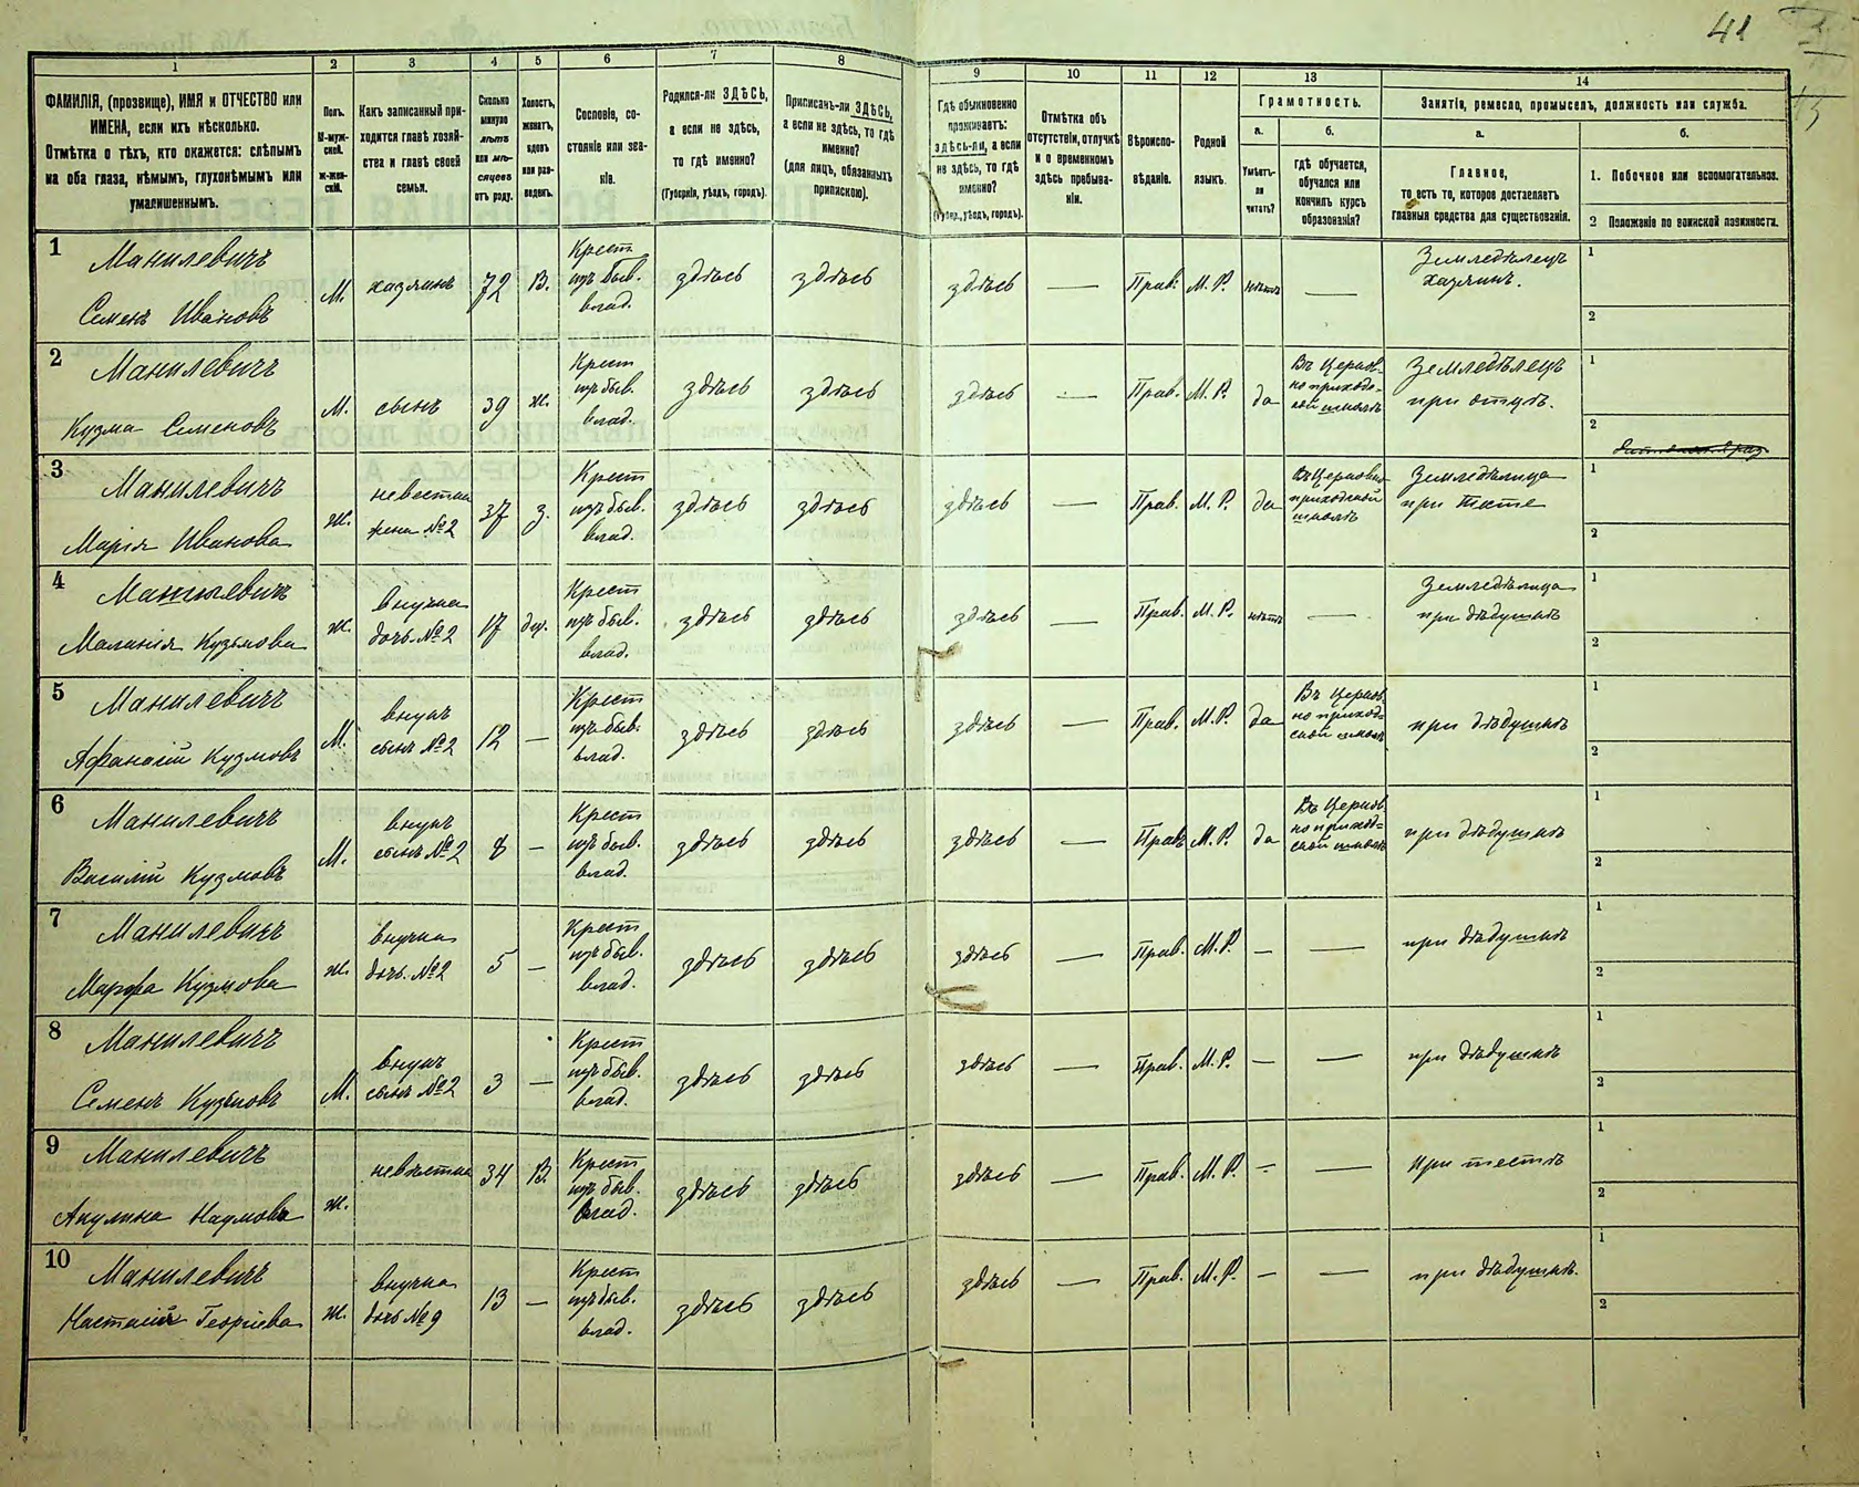 41
1
2
3
4
5
6
7
8
9
10
11
12
13
14
ФАМИЛІЯ, (прозвище), ИМЯ и ОТЧЕСТВО или
ИМЕНА, если ихъ нѣсколько.
Отмѣтка о тѣхъ, кто окажется: слѣпымъ
на оба глаза, нѣмымъ, глухонѣмымъ или
умалишеннымъ.
Полъ.
М-муж-
ской.
Ж-жен-
скій.
Какъ записанный при-
ходится главѣ хозяй-
ства и главѣ своей
семьи.
Сколько
минуло
лѣтъ
или мѣ-
сяцевъ
отъ роду.
Холостъ,
женатъ,
вдовъ
или раз-
веденъ.
Сословіе, со-
стояніе или зва-
ніе.
Родился-ли ЗДѢСЬ,
а если не здѣсь,
то гдѣ именно?
(Губернія, уѣздъ, городъ).
Приписанъ-ли ЗДѢСЬ,
а если не здѣсь, то гдѣ
именно?
(для лицъ, обязанныхъ
припискою).
Гдѣ обыкновенно
проживаетъ:
здѣсь-ли, а если
не здѣсь, то гдѣ
именно?
(Губер., уѣздъ, городъ).
Отмѣтка объ
отсутствіи, отлучкѣ
и о временномъ
здѣсь пребыва-
ніи.
Вѣроиспо-
вѣданіе.
Родной
языкъ.
Грамотность.
а.
Умѣетъ-
ли
читать?
б.
гдѣ обучается,
обучался или
кончилъ курсъ
образованія?
Занятія, ремесло, промыселъ, должность или служба.
а.
Главное,
то есть то, которое доставляетъ
главныя средства для существованія.
б.
1. Побочное или вспомогательное.
2 Положеніе по воинской повинности.
1
Манилевичъ
Семенъ Ивановъ
М. хазяинъ 72 В.
Крест
изъ быв.
влад.
здѣсь здѣсь здѣсь — Прав. М. Р. нѣтъ —
Земледѣлецъ
хазяинъ.
1
2
2
Манилевичъ
Кузма Семеновъ
М. сынъ 39 ж.
Крест
изъ быв.
влад.
здѣсь здѣсь здѣсь — Прав. М. Р. да
Въ Церков-
но приход-
ской школѣ
Земледѣлецъ
при отцѣ.
1
2
3
Манилевичъ
Марія Иванова
ж.
невестка
жена №2
37 з.
Крест
изъ быв.
влад.
здѣсь здѣсь здѣсь — Прав. М. Р. да
Въ Церковно
приходской
школѣ
Земледѣлица
при тесте
1
2
4
Манилевичъ
Маланія Кузьмова
ж.
внучка
дочь №2
17 дѣв.
Крест
изъ быв.
влад.
здѣсь здѣсь здѣсь — Прав. М. Р. нѣтъ —
Земледѣлица
при дѣдушкѣ
1
2
5
Манилевичъ
Афанасій Кузмовъ
М.
внукъ
сынъ №2
12 —
Крест
изъ быв.
влад.
здѣсь здѣсь здѣсь — Прав. М. Р. да
Въ Церков
но приход=
ской школѣ
при дѣдушкѣ
1
2
6
Манилевичъ
Василій Кузмовъ
М.
внукъ
сынъ №2
8 —
Крест
изъ быв.
влад.
здѣсь здѣсь здѣсь — Прав М. Р. да
Въ Церков
но приход=
ской школѣ
при дѣдушкѣ
1
2
7
Манилевичъ
Марфа Кузмова
ж.
внучка
дочь №2
5 —
Крест
изъ быв.
влад.
здѣсь здѣсь здѣсь — Прав. М. Р. — —
при дѣдушкѣ
1
2
8
Манилевичъ
Семенъ Кузьмовъ
М.
внукъ
сынъ №2
3 —
Крест
изъ быв.
влад.
здѣсь здѣсь здѣсь — Прав. М. Р. — —
при дѣдушкѣ
1
2
9
Манилевичъ
Акулина Наумова
ж. невѣстка 34 В.
Крест
изъ быв.
влад.
здѣсь здѣсь здѣсь — Прав. М. Р. — —
При тестѣ
1
2
10
Манилевичъ
Настасія Георгіева
ж.
внучка
дочь №9
13 —
Крест
изъ быв.
влад.
здѣсь здѣсь здѣсь — Прав. М. Р. — —
при дѣдушкѣ.
1
2